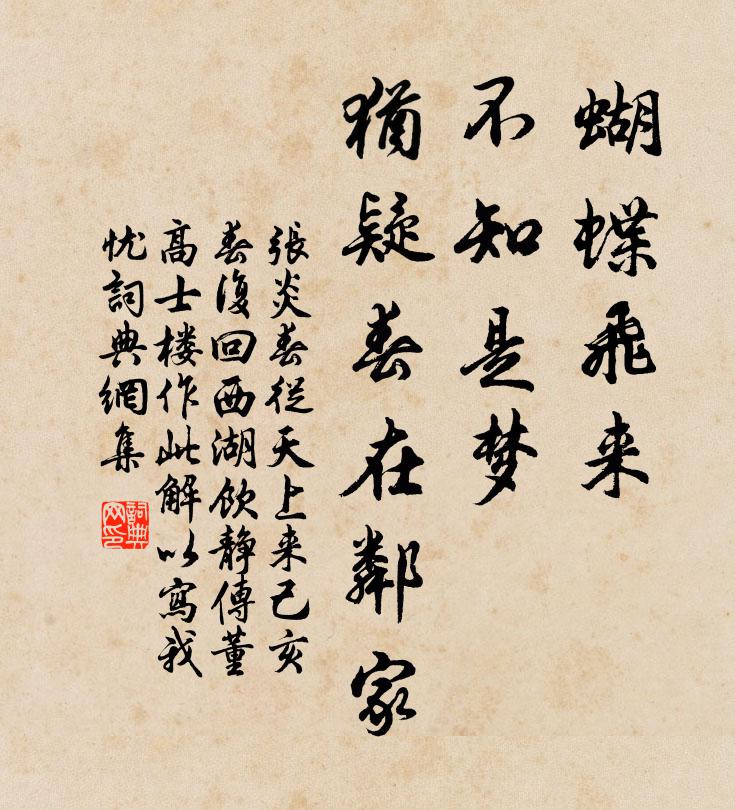 蝴蝶飛来
不知是梦
猶疑春在鄰家
張炎春從天上来己亥
春復回西湖飲静傳董
高士楼作此解以寫我
忧詞典網集
詞典网印